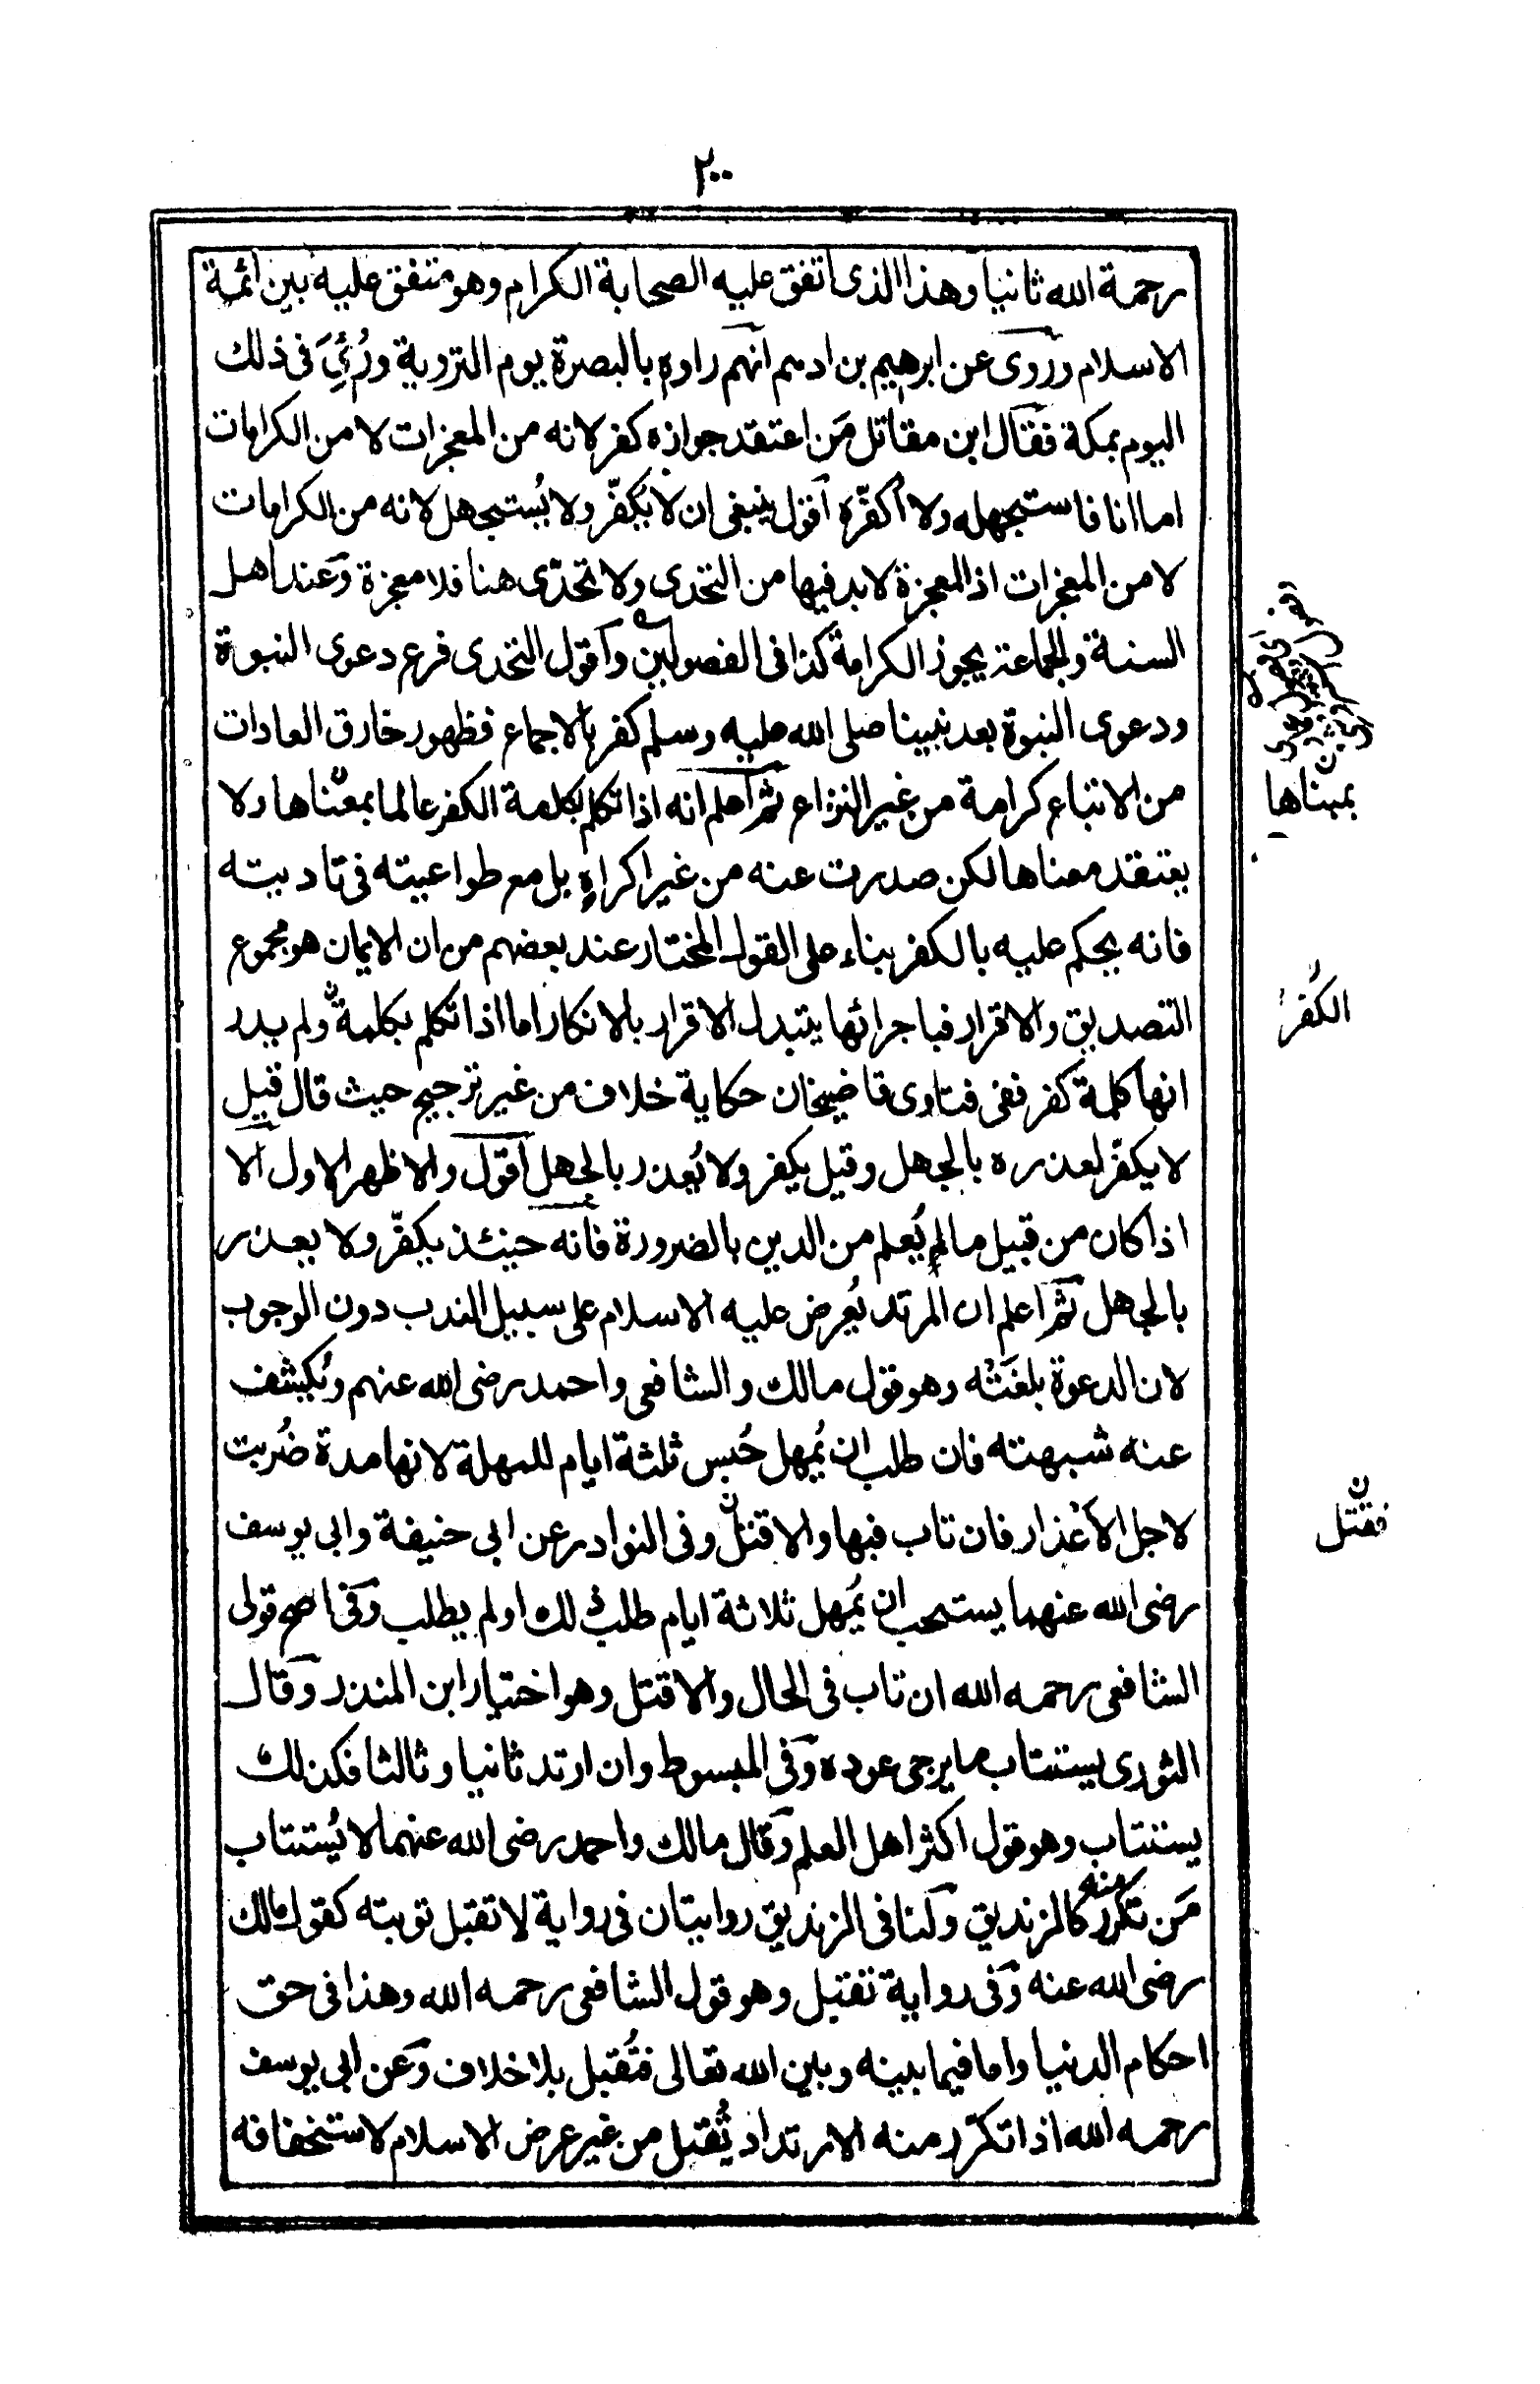 ٢٠٠
رحمة الله ثانيا وهذا الذى اتفق عليه الصحابة الكرام وهو متفق عليه بين ائمة
الاسلام وروى عن ابرهيم بن ادهم انهم راوه بالبصرة يوم التروية ورُئِيَ فى ذلك
اليوم بمكة فقال ابن مقاتل مَن اعتقد جوازه كفر لانه من المعجزات لا من الكرامات
اما انا فاستجهله ولا اُكفّره اقول ينبغى ان لا يُكفّر ولا يُستجهل لانه من الكرامات
لا من المعجزات اذ المعجزة لا بد فيها من التحدى ولا تحدّى هنا فلا معجزة وعند اهل
السنة والجماعة يجوز الكرامة كذا فى الفصولين واقول التحدى فرع دعوى النبوة
ودعوى النبوة بعد نبينا صلى الله عليه وسلم كفر بالاجماع فظهور خارق العادات
من الاتباع كرامة من غير النزاع ثم اعلم انه اذا تكلم بكلمة الكفر عالما بمعناها ولا
يعتقد معناها لكن صدرت عنه من غير اكراهٍ بل مع طواعيته فى تاديته
فانه يحكم عليه بالكفر بناء على القول المختار عند بعضهم من ان الايمان هو مجموع
التصديق والاقرار فباجرائها يتبدل الاقرار بالانكار اما اذا تكلم بكلمة ولم يدر
انها كلمة كفر ففى فتاوى قاضيخان حكاية خلاف من غير ترجيح حيث قال قيل
لا يكفّر لعذره بالجهل وقيل يكفر ولا يُعذر بالجهل اقول والاظهر الاول الا
اذا كان من قبيل ما لم يُعلم من الدين بالضرورة فانه حينئذ يكفّر ولا يعذر
بالجهل ثم اعلم ان المرتد يُعرض عليه الاسلام على سبيل الندب دون الوجوب
لان الدعوة بلغَتْه وهو قول مالك والشافعى واحمد رضى الله عنهم وتُكشف
عنه شبهته فان طلب ان يُمهل حُبس ثلثة ايام للمهلة لانها مدة ضُربت
لاجل الاَعْذار فان تاب فبها والا قتل وفى النوادر عن ابى حنيفة وابى يوسف
رضى الله عنهما يستحب ان يُمهل ثلاثة ايام طلب ذلك او لم يطلب وفى اصح قولى
الشافعى رحمه الله ان تاب فى الحال والا قتل وهو اختيار ابن المنذر وقال
الثورى يستتاب ما يرجى عوده وفى المبسوط وان ارتد ثانيا وثالثا فكذلك
يستتاب وهو قول اكثر اهل العلم وقال مالك واحمد رضى الله عنهما لا يُستتاب
مَن تكرر منه كالزنديق ولنا فى الزنديق روايتان فى رواية لا تقبل توبته كقول مالك
رضى الله عنه وفى رواية تقبل وهو قول الشافعى رحمه الله وهذا فى حق
احكام الدنيا واما فيما بينه وبين الله تعالى فتُقبل بلا خلاف وعن ابى يوسف
رحمه الله اذا تكرّر منه الارتداد يُقتل من غير عرض الاسلام لاستخفافه
بمبناها
الكُفر
فقتل